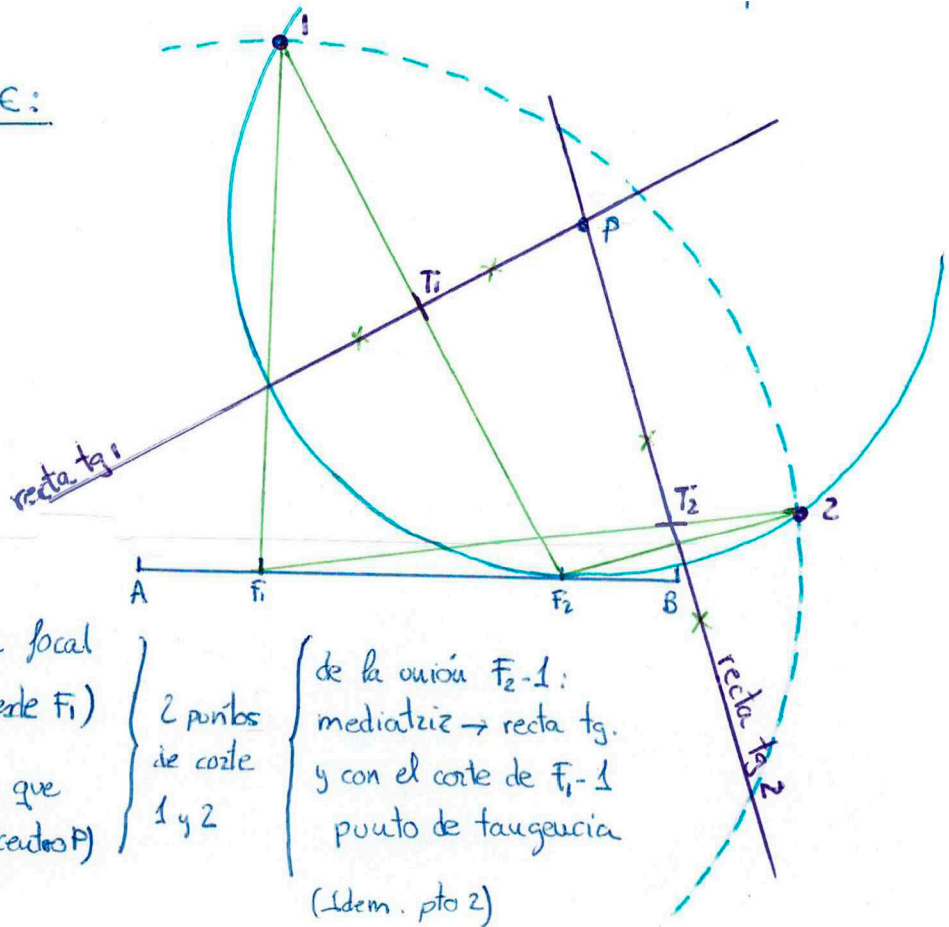 E:
1
P
Ti
recta tg1
T2
2
A
F1
F2
B
recta tg 2
focal
F1)
que
centro P)
2 puntos
de corte
1 y 2
de la unión F2-1:
mediatriz → recta tg.
y con el corte de F1-1
punto de tangencia
(Idem. pto 2)